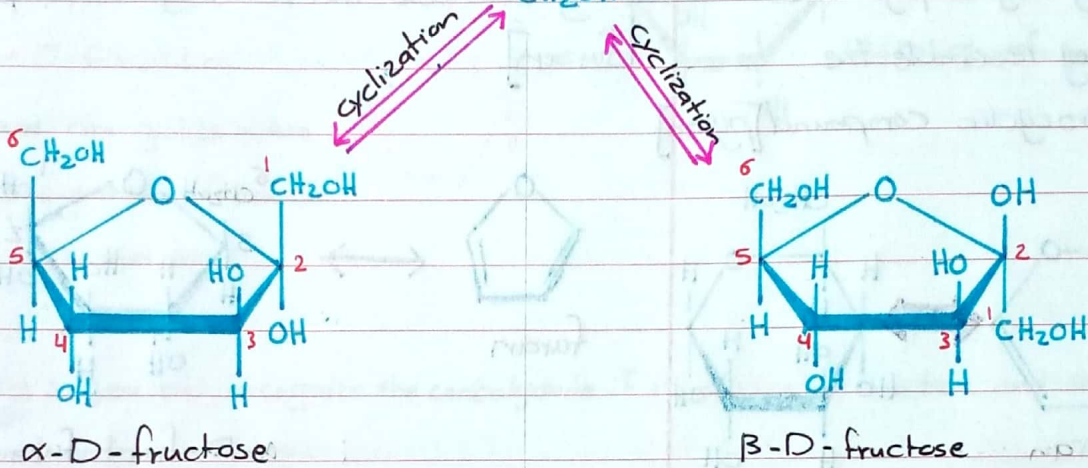 cyclization
cyclization
6
CH₂OH
O
1
CH₂OH
5
H
HO
2
H
4
3
OH
OH
H
α-D-fructose
6
CH₂OH
O
OH
5
H
HO
2
H
4
3
1
CH₂OH
OH
H
β-D-fructose